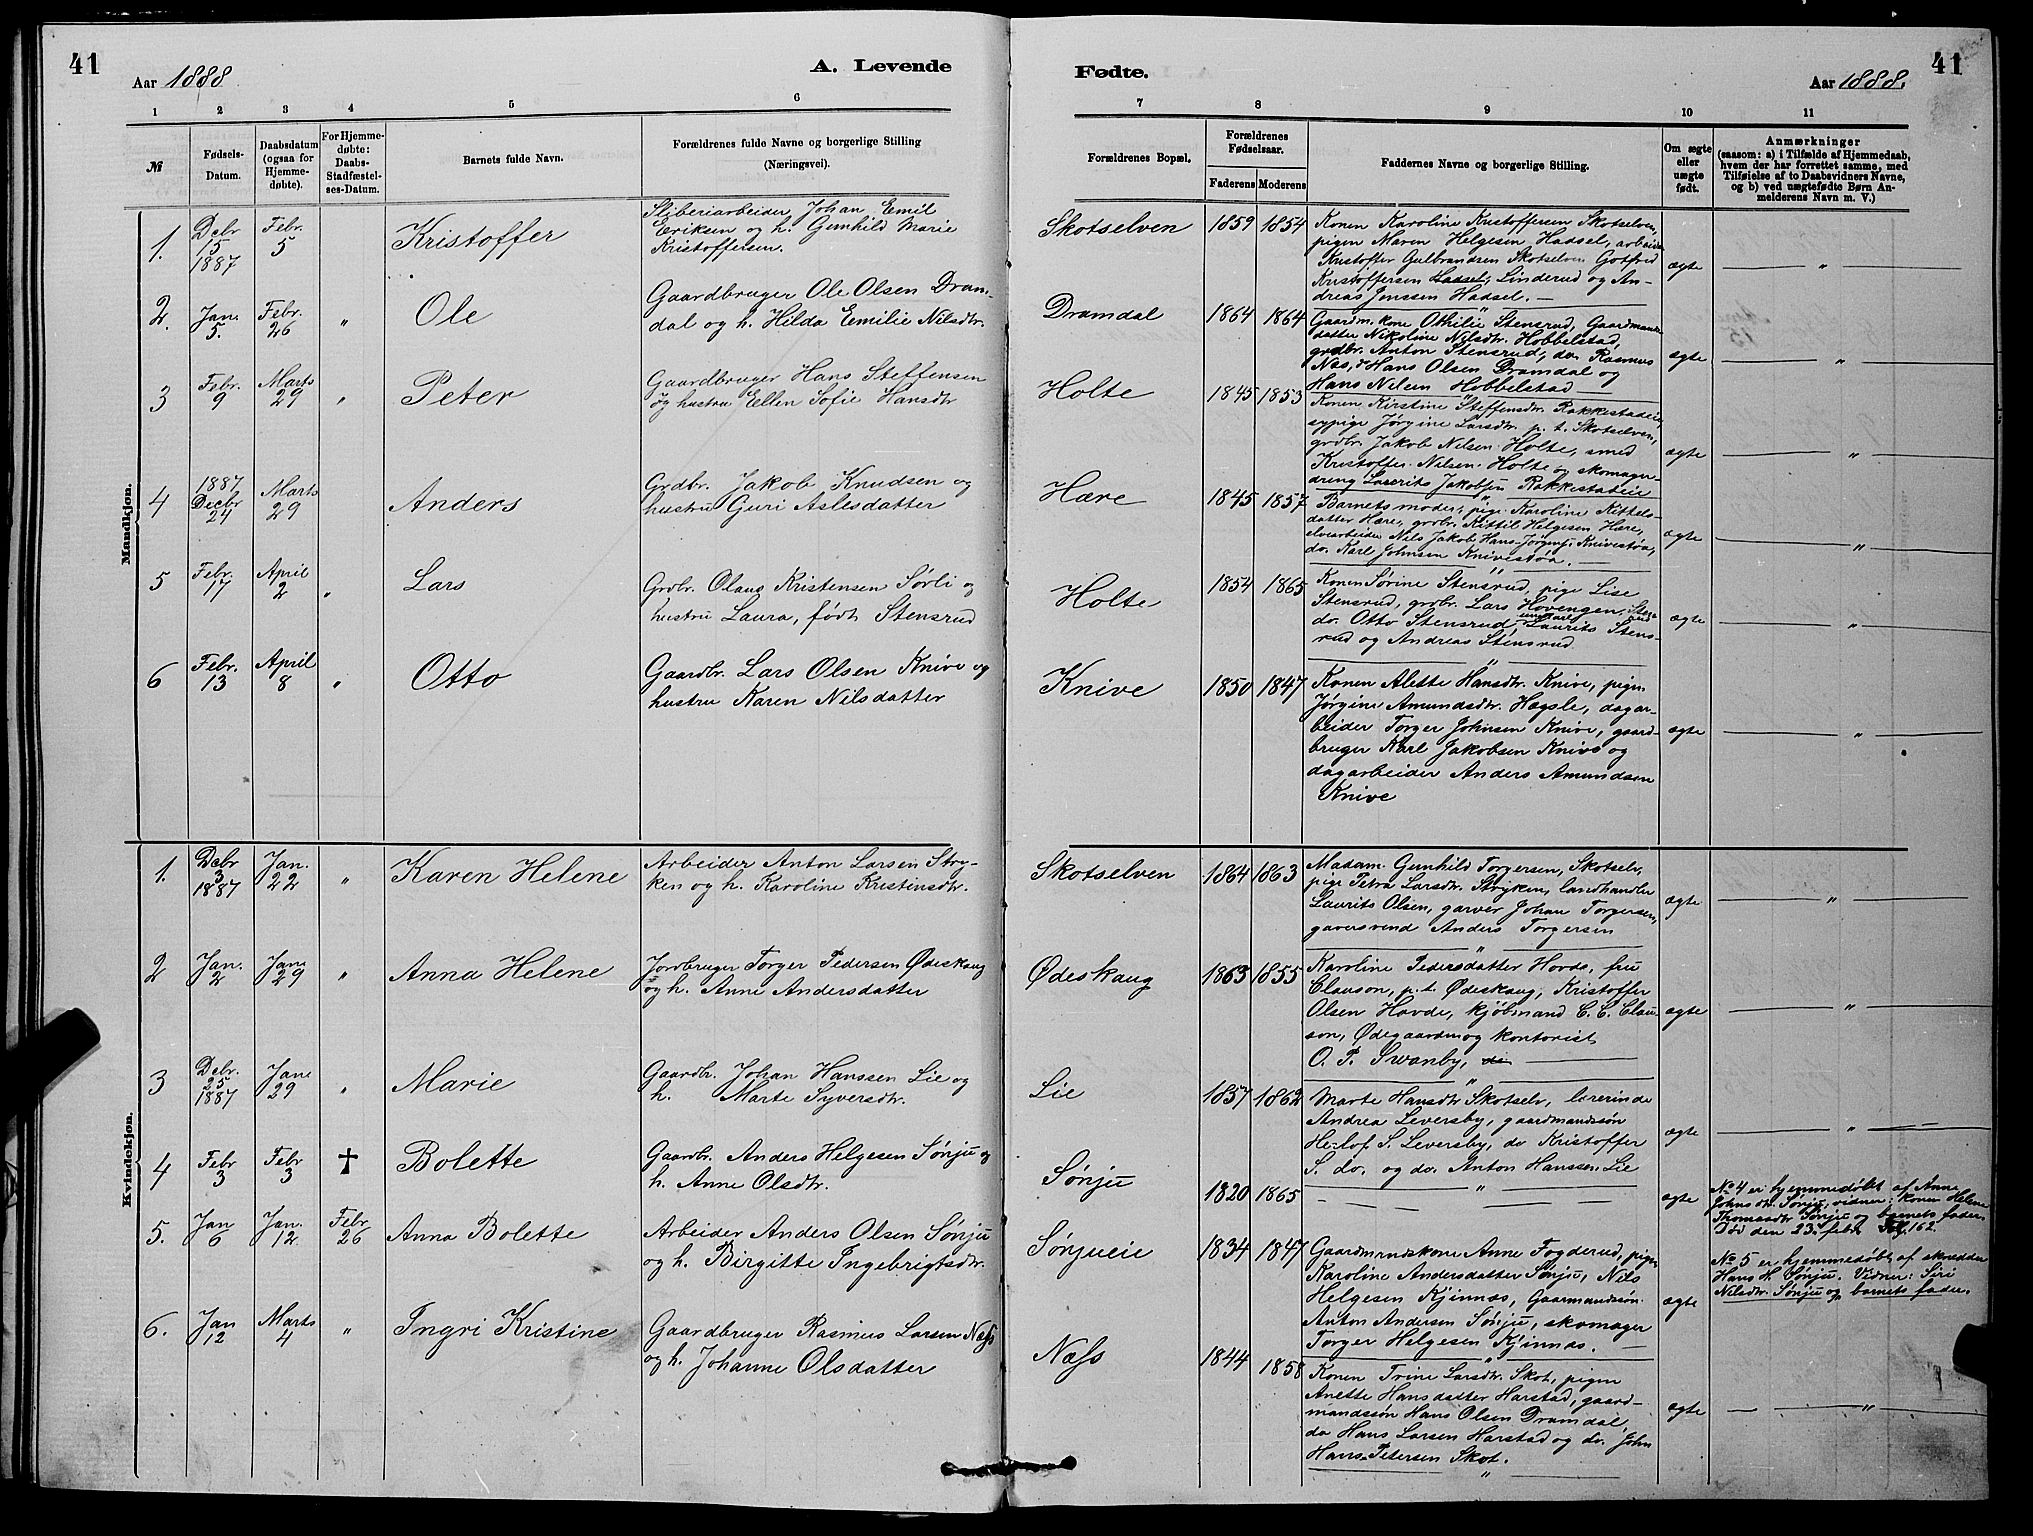 41
Aar 1888
A. Levende
1 2 3 4 5 6
№
Fødsels-
Datum.
Daabsdatum
(ogsaa for
Hjemme-
døbte).
For Hjemme-
døbte:
Daabs-
Stadfæstel-
ses-Datum.
Barnets fulde Navn.
Forældrenes fulde Navne og borgerlige Stilling
(Næringsvei).
Mandkjøn.
1.
Decbr
15
1887
Febr.
5
Kristoffer
Sliberiarbeider Johan Emil
Eriksen og h. Gunhild Marie
Kristoffersen.
2.
Jan.
5.
Febr.
26
"
Ole
Gaardbruger Ole Olsen Dram-
dal og h. Hilda Emilie Nilsdtr.
3
Febr.
9
Marts
29
"
Peter
Gaardbruger Hans Steffensen
og hustru Ellen Sofie Hansdtr
4
1887
Decbr
24
Marts
29
Anders
Grdbr. Jakob Knudsen og
hustru Guri Aslesdatter
5
Febr.
17
April
2
"
Lars
Grdbr. Olaus Kristensen Sørli og
hustru Laura, født Stensrud
6
Febr.
13
April
8
"
Otto
Gaardbr. Lars Olsen Knive og
hustru Karen Nilsdatter
Kvindekjøn.
1.
Debr
3
1887
Jan.
22
"
Karen Helene
Arbeider Anton Larsen Stry-
ken og h. Karoline Kristinsdtr.
2
Jan.
2
Jan.
29
"
Anna Helene
Jordbruger Torger Pedersen Ødeskaug
og h. Anne Andersdatter
3
Debr.
25
1887
Jan.
29
"
Marie
Gaardbr. Johan Hanssen Lie og
h. Marte Syversdtr.
4
Febr
3
Febr
3
†
Bolette
Gaardbr. Anders Helgesen Sønju og
h. Anne Olsdtr.
5.
Jan
6
Jan.
12
Febr
26
Anna Bolette
Arbeider Anders Olsen Sønju
og h. Birgitte Ingebrigtsdtr.
6.
Jan
12
Marts
4
"
Ingri Kristine
Gaardbruger Rasmus Larsen Næss
og h. Johanne Olsdatter
Fødte.
Aar 1888.
41
7 8 9 10 11
Forældrenes Bopæl.
Forældrenes
Fødselsaar.
Faderens Moderens
Faddernes Navne og borgerlige Stilling.
Om ægte
eller
uægte
født.
Anmærkninger
(saasom: a) i Tilfælde af Hjemmedaab,
hvem der har forrettet samme, med
Tilføielse af to Daabsvidners Navne,
og b) ved uægtefødte Børn An-
melderens Navn m. V.)
Skotselven
1859 1854
Konen Karoline Kristoffersen Skotselven,
pigen Maren Helgesen Hadsel, arbeider
Kristoffer Gulbrandsen Skotselven Gotfred
Kristoffersen Hadsel, Linderud og An-
dreas Jenssen Hadsel. —
ægte
"
Dramdal
1864 1864
Gaardm. kone Othilie Stensrud, Gaardmands
datter Nikoline Nilsdtr. Hobbelstad,
grdbr. Anton Stensrud, do. Rasmus
Næs, Hans Olsen Dramdal og
Hans Nilsen Hobbelstad
ægte
"
Holte
1845 1853
Konen Kirstine Steffensdtr. Rakkestadeie,
sypige Jørgine Larsdtr. p. t. Skotselven,
grdbr. Jakob Nilsen Holte, smed
Kristoffer Nilsen Holte og skomager-
dreng Laurits Jakobsen Rakkestadeie
ægte
"
Hære
1845 1857
Barnets moder, pige Karoline Kittels-
datter Hære, grdbr. Kittil Helgesen Hære,
elvearbeider Nils Jakob Hans-Jørgens. Knivestøa,
do. Karl Johnsen Knivestøa. —
ægte
"
Holte
1854 1865
Konen Sørine Stensrud, pige Lise
Stensrud, grdbr. Lars Hovengen, Stens-
rud
do. Otto Stensrud, ungkarl Laurits Stens-
rud og Andreas Stensrud
ægte
"
Knive
1850 1847
Konen Alette Hansdtr. Knive, pigen
Jørgine Amundsdtr. Hagsle, dagar-
beider Torger Johnsen Knive, gaard-
bruger Karl Jakobsen Knive og
dagarbeider Anders Amundsen
Knive
ægte
"
Skotselven
1864 1863
Madam. Gunhild Torgersen, Skotselv,
pige Petra Larsdtr. Stryken, landhandler
Laurits Olsen, garver Johan Torgersen,
gaversvend Anders Torgersen
ægte
"
Ødeskaug
1863 1855
Karoline Pedersdatter Hovde, fru
Clauson, p. t. Ødeskaug, Kristoffer
Olsen Hovde, kjøbmand C. C. Clau-
son, Ødegaarden og kontorist
O. P. Swanby, do
ægte
"
Lie
1857 1862
Marte Hansdtr Skotselv, lærerinde
Andrea Leversby, gaardmandssøn
Helof S. Leversby, do Kristoffer
S. do. og do. Anton Hanssen Lie
ægte
"
Sønju
1820 1865
"
ægte
No 4 er hjemmedøbt af Anne
Johnsdtr. Sønju, vidner: konen Helene
Thomasdtr Sønju og barnets fader.
Død den 23. febr. Fol. 162.
Sønjueie
1834 1847
Gaardmandskone Anne Fogderud, pigen
Karoline Andersdatter Sønju, Nils
Helgesen Kjinnas, Gaarmandssøn
Anton Andersen Sønju, skomager
Torger Helgesen Kjinnas. —
ægte
No 5 er hjemmedøbt af skrædder
Hans H. Sønju. Vidner: Siri
Nilsdtr. Sønju og barnets fader.
Næss
1844 1858
Konen Trine Larsdtr. Skot, pigen
Anette Hansdatter Harstad, gaard-
mandssøn Hans Olsen Dramdal,
do Hans Larsen Harstad og do. John
Hans-Petersen Skot.
ægte
"